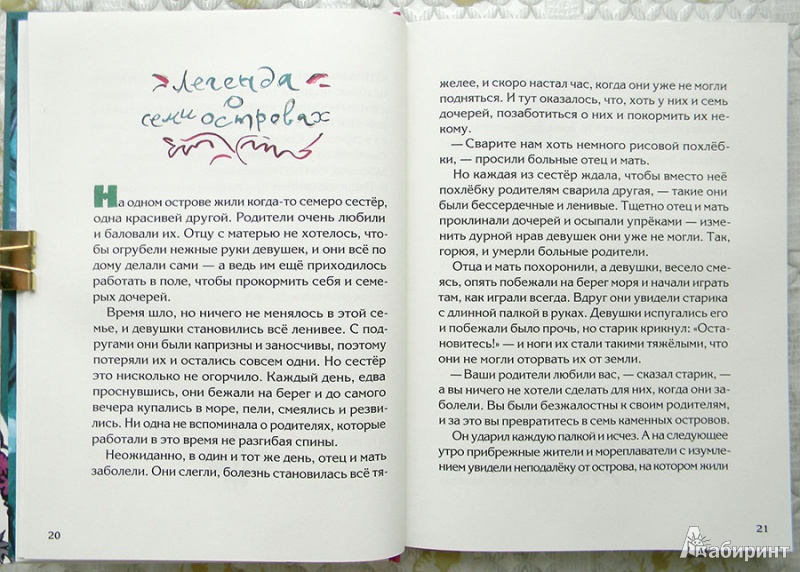 Легенда
о
семи островах
На одном острове жили когда-то семеро сестёр,
одна красивей другой. Родители очень любили
и баловали их. Отцу с матерью не хотелось, чтобы
огрубели нежные руки девушек, и они всё по
дому делали сами — а ведь им ещё приходилось
работать в поле, чтобы прокормить себя и семе-
рых дочерей.
Время шло, но ничего не менялось в этой се-
мье, и девушки становились всё ленивее. С по-
другами они были капризны и заносчивы, поэтому
потеряли их и остались совсем одни. Но сестёр
это нисколько не огорчило. Каждый день, едва
проснувшись, они бежали на берег и до самого
вечера купались в море, пели, смеялись и резви-
лись. Ни одна не вспоминала о родителях, которые
работали в это время не разгибая спины.
Неожиданно, в один и тот же день, отец и мать
заболели. Они слегли, болезнь становилась всё тя-
20
желее, и скоро настал час, когда они уже не могли
подняться. И тут оказалось, что, хоть у них и семь
дочерей, позаботиться о них и покормить их не-
кому.
— Сварите нам хоть немного рисовой похлёб-
ки, — просили больные отец и мать.
Но каждая из сестёр ждала, чтобы вместо неё
похлёбку родителям сварила другая, — такие они
были бессердечные и ленивые. Тщетно отец и мать
проклинали дочерей и осыпали упрёками — изме-
нить дурной нрав девушек они уже не могли. Так,
горюя, и умерли больные родители.
Отца и мать похоронили, а девушки, весело сме-
ясь, опять побежали на берег моря и начали играть
там, как играли всегда. Вдруг они увидели старика
с длинной палкой в руках. Девушки испугались его
и побежали было прочь, но старик крикнул: «Оста-
новитесь!» — и ноги их стали такими тяжёлыми, что
они не могли оторвать их от земли.
— Ваши родители любили вас, — сказал старик, —
а вы ничего не хотели сделать для них, когда они за-
болели. Вы были безжалостны к своим родителям,
и за это вы превратитесь в семь каменных островов.
Он ударил каждую палкой и исчез. А на следующее
утро прибрежные жители и мореплаватели с изум-
лением увидели неподалёку от острова, на котором жили
21
Лабиринт